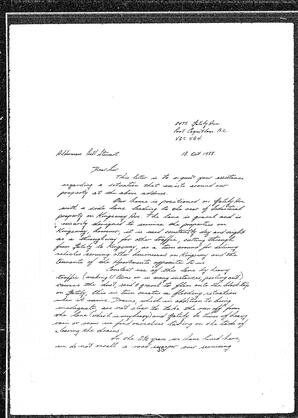 Port Coquitlam B.C.
Alderman Bill Stewart
18 Oct 1988
Dear Sir
This letter is to request your assistance
regarding a situation that exists around our
property at the above address.
Our home is positioned on Gately Ave
with a side lane leading to the rear of
property on Kingsway Ave. The lane is gravel and is
designed to service the properties on
Kingsway, however, it is used constantly day and night
as a thoroughfare for other traffic, cutting through
from Gately to Kingsway, as a turn around for
vehicles servicing other businesses on Kingsway and the
tenants of the Apartments opposite to us.
Constant use of this lane by heavy
traffic (making U turns or in many instances, peeling out)
causes the dust, and gravel to
on Gately, this in turn creates a flooding situation
when it rains. Drains, which in addition to being
inadequate, are not able to take the run off from
the lane
or seen us ourselves taking on the task of
clearing the drains.
In the 2½ years we have lived here,
we do not recall a road